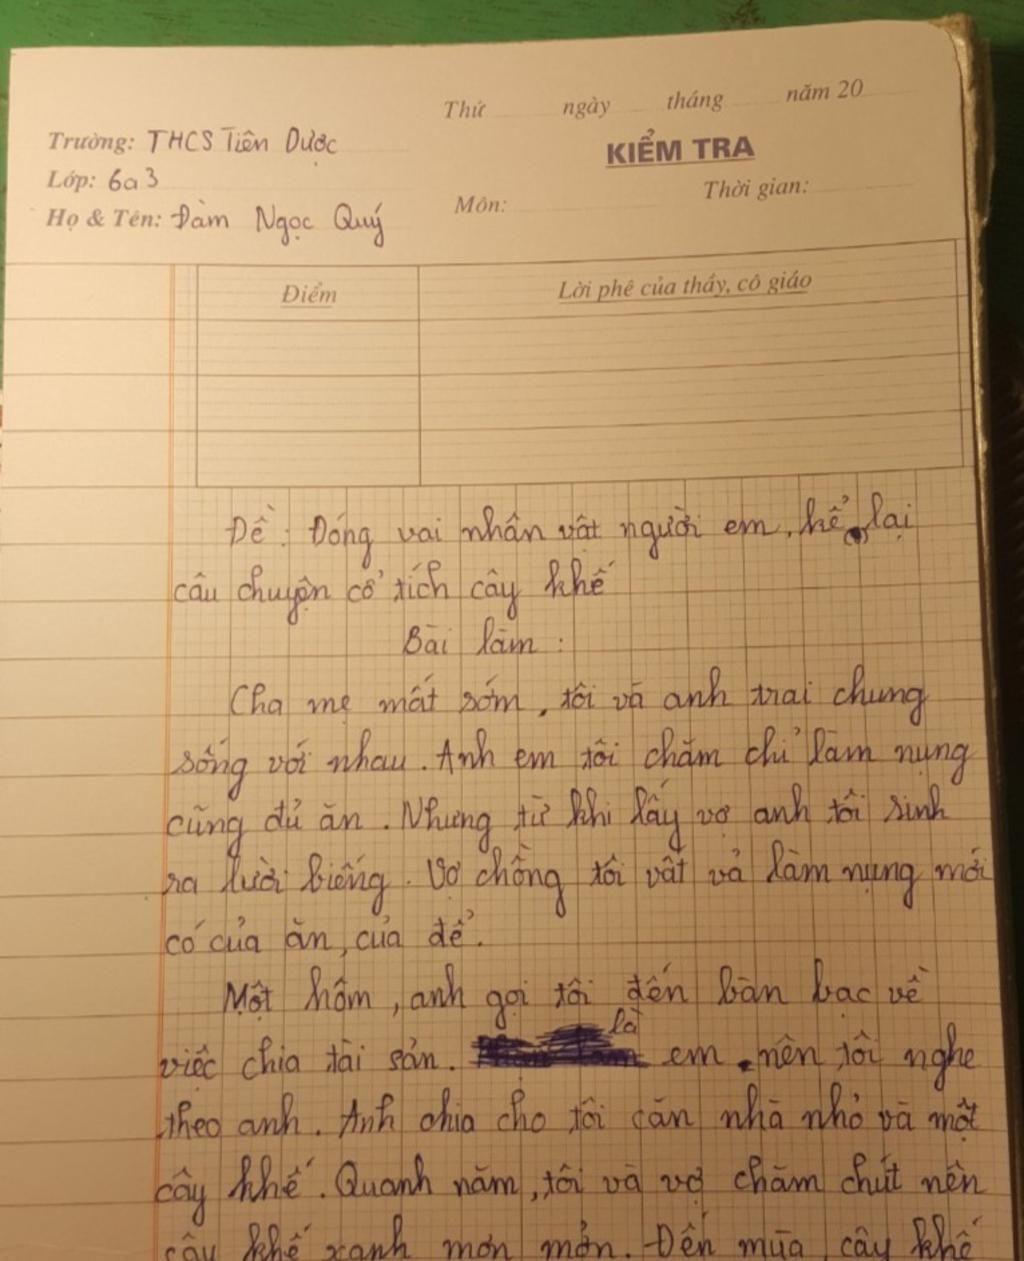 Thứ ngày tháng năm 20
Trường: THCS Tiên Dược
KIỂM TRA
Lớp: 6a3
Môn: Thời gian:
Họ & Tên: Đàm Ngọc Quý
Điểm
Lời phê của thầy, cô giáo
Đề: Đóng vai nhân vật người em, kể lại
câu chuyện cổ tích cây khế
Bài làm:
Cha mẹ mất sớm, tôi và anh trai chung
sống với nhau. Anh em tôi chăm chỉ làm nụng
cũng đủ ăn. Nhưng từ khi lấy vợ anh tôi sinh
ra lười biếng. Vợ chồng tôi vất vả làm nụng mới
có của ăn, của để.
Một hôm, anh gọi tôi đến bàn bạc về
việc chia tài sản. là em nên tôi nghe
theo anh. Anh chia cho tôi căn nhà nhỏ và một
cây khế. Quanh năm, tôi và vợ chăm chút nên
cây khế xanh mơn mởn. Đến mùa, cây khế